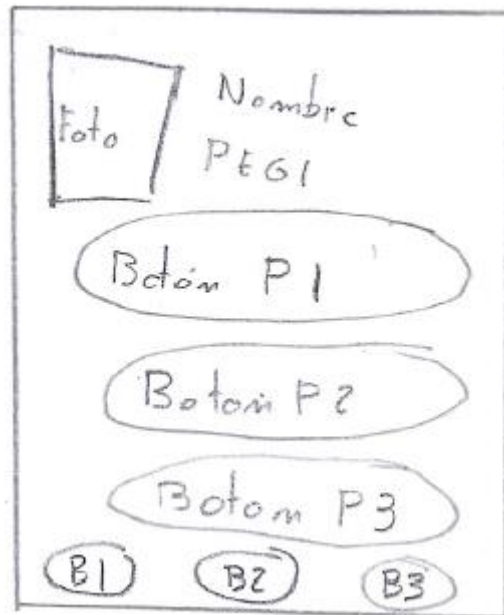 Foto
Nombre
PEGI
Botón P1
Botón P2
Botón P3
B1 B2 B3